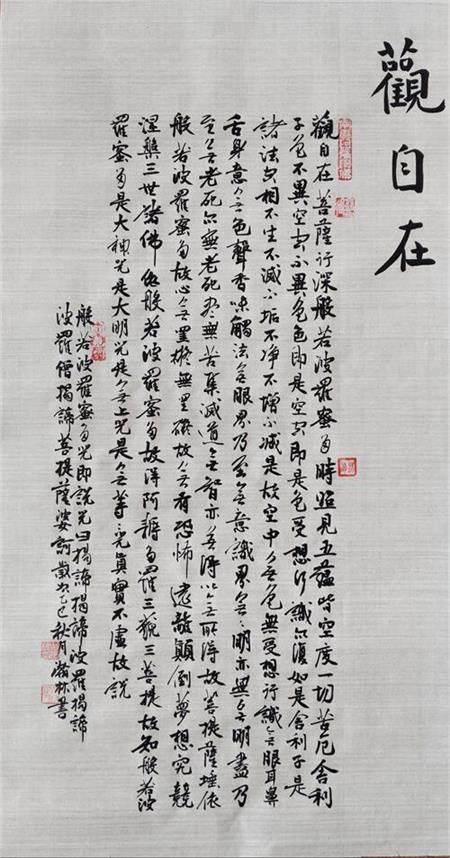 觀自在
觀自在菩薩行深般若波羅蜜多時照見五蘊皆空度一切苦厄舍利
子色不異空空不異色色即是空空即是色受想行識亦復如是舍利子是
諸法空相不生不滅不垢不净不增不減是故空中無色無受想行識無眼耳鼻
舌身意無色聲香味觸法無眼界乃至無意識界無無明亦無無明盡乃
至無老死亦無老死盡無苦集滅道無智亦無得以無所得故菩提薩埵依
般若波羅蜜多故心無罣礙無罣礙故無有恐怖遠離顛倒夢想究竟
涅槃三世諸佛依般若波羅蜜多故得阿耨多羅三藐三菩提故知般若波
羅蜜多是大神咒是大明咒是無上咒是無等々咒真實不虛故說
般若波羅蜜多咒即說咒曰揭諦揭諦波羅揭諦
波羅僧揭諦菩提薩婆訶 歲巳秋月滿林書